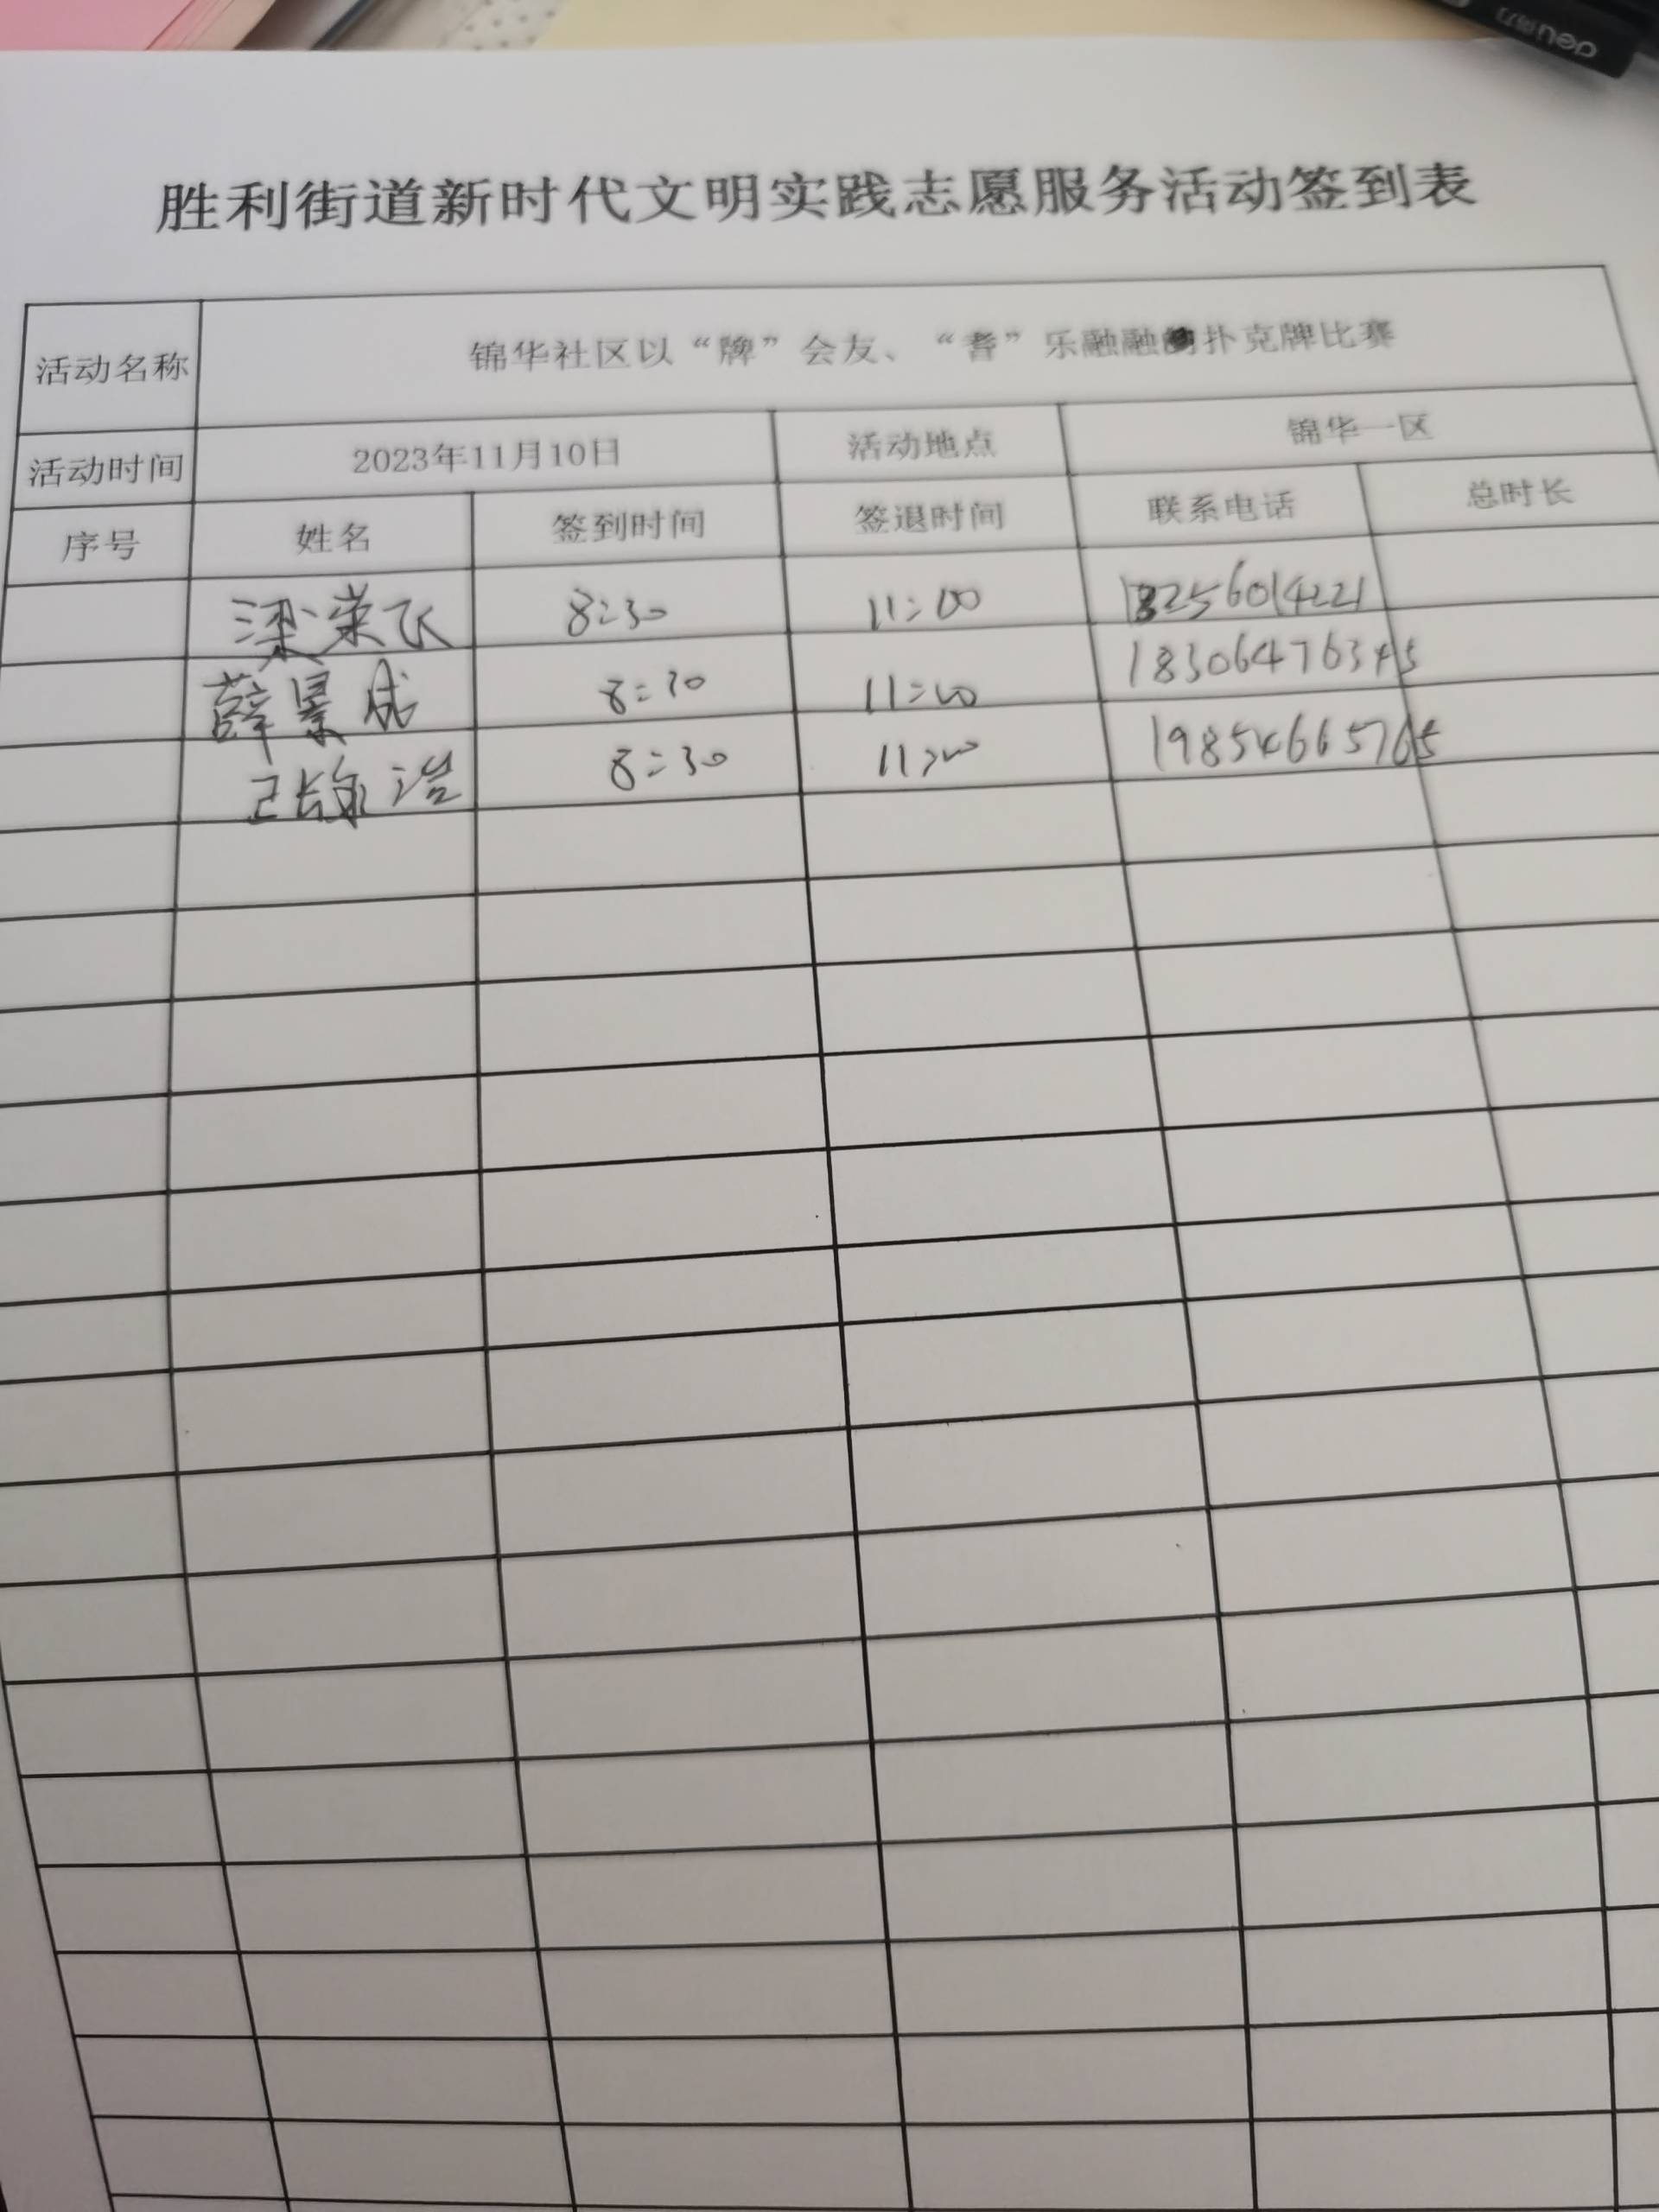 deli
胜利街道新时代文明实践志愿服务活动签到表
活动名称 锦华社区以“牌”会友、“耆”乐融融的扑克牌比赛
活动时间 2023年11月10日 活动地点 锦华一区
序号 姓名 签到时间 签退时间 联系电话 总时长
梁荣飞 8:30 11:00 18256014221
薛景成 8:30 11:00
8:30 11:00 19854665765